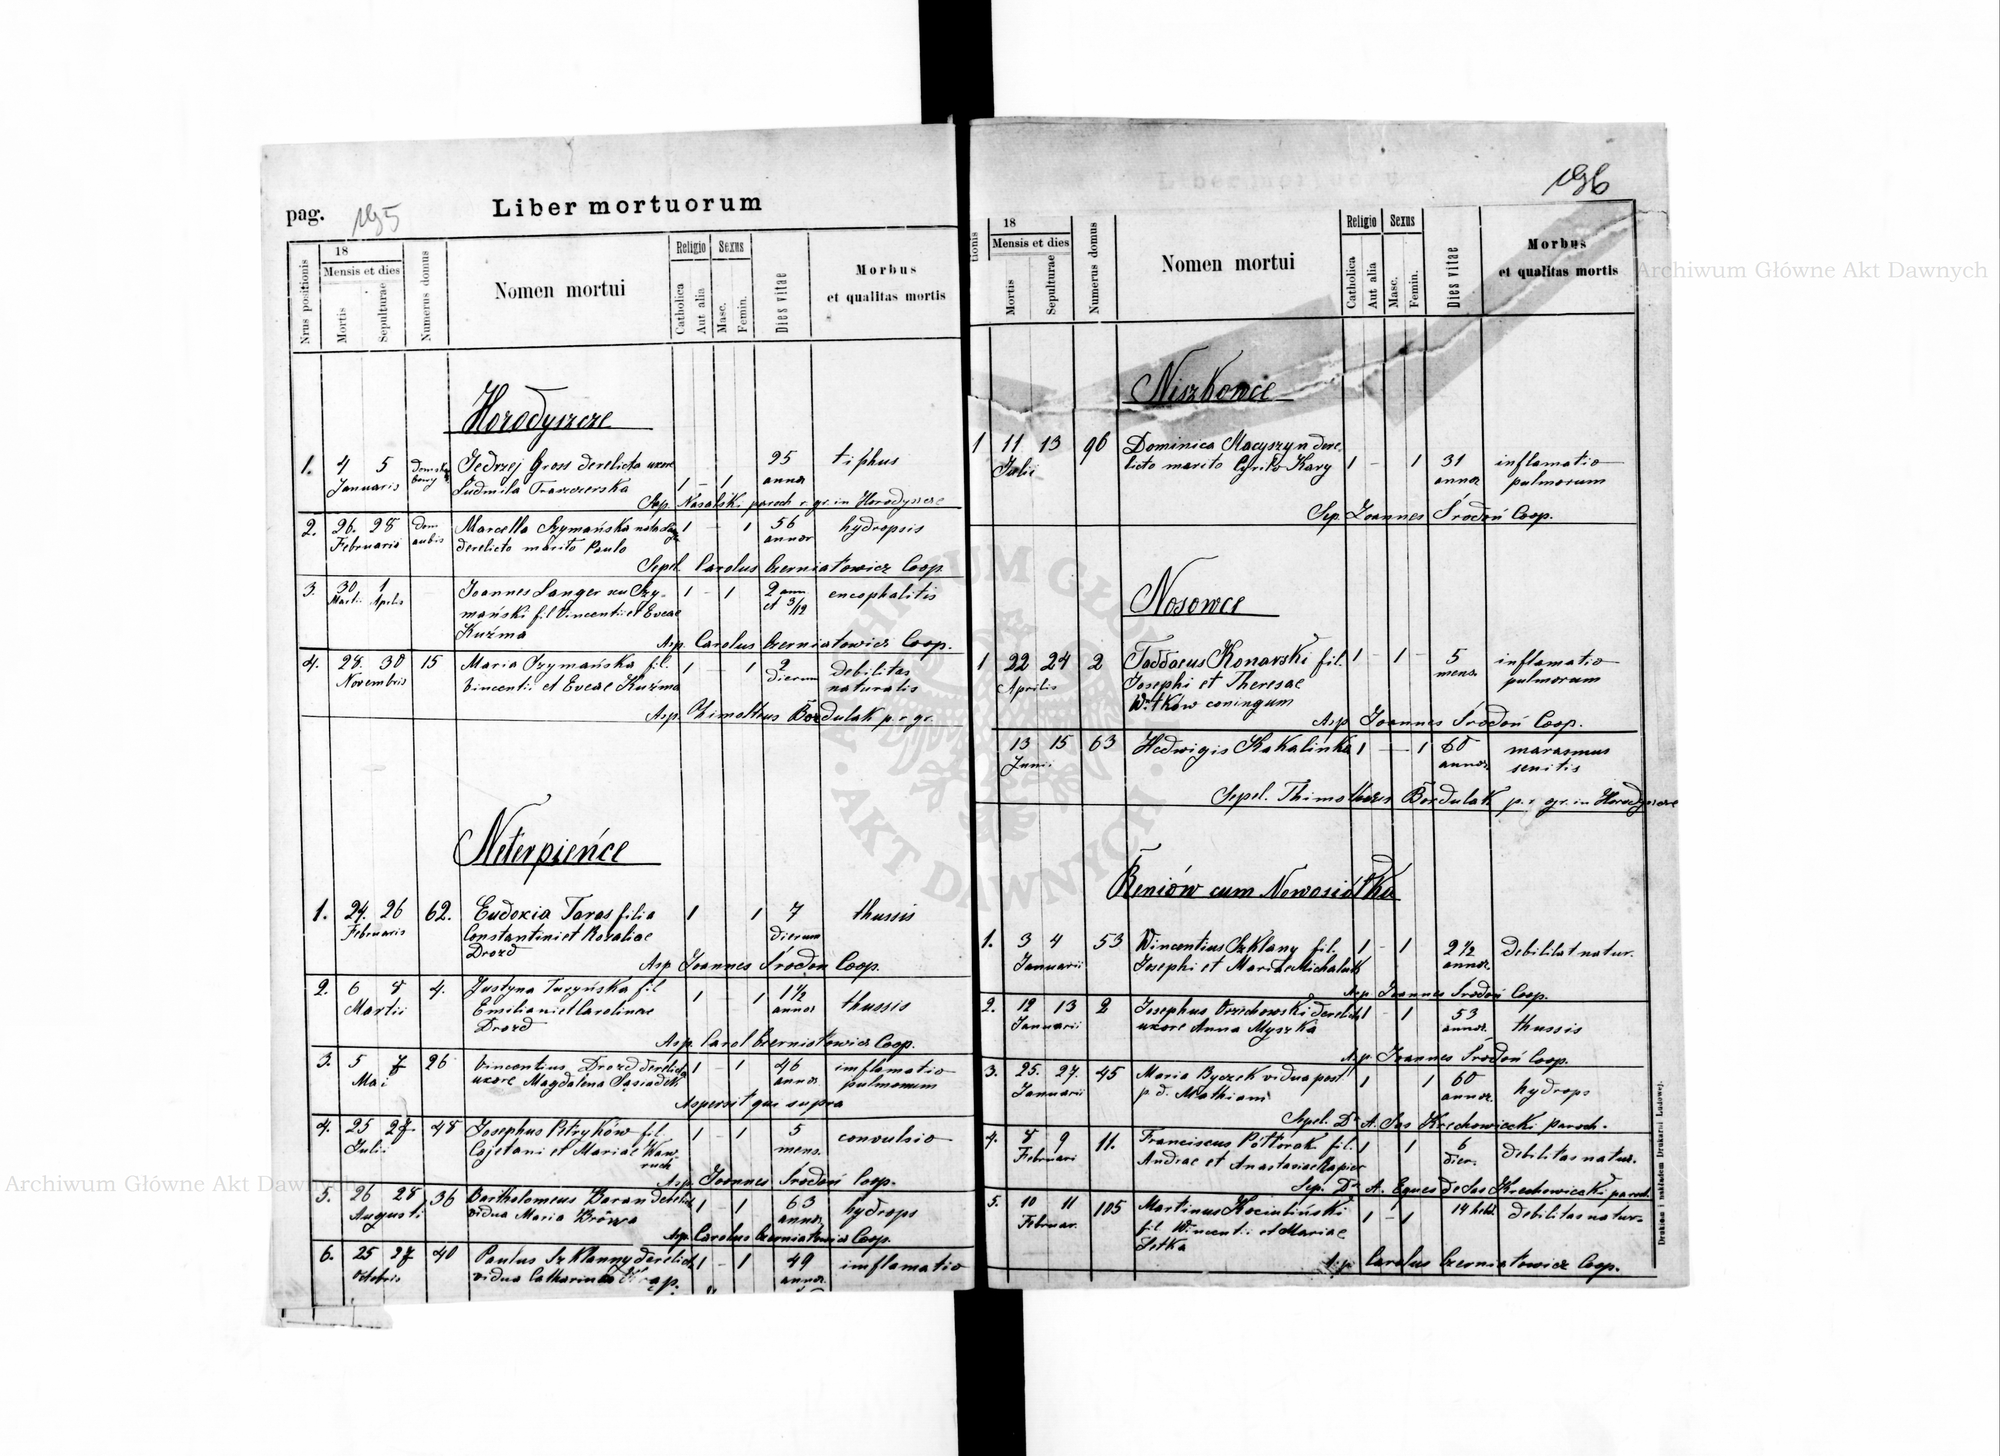 pag. 195
Liber mortuorum
Nrus positionis
18
Mensis et dies
Mortis
Sepulturae
Numerus domus
Nomen mortui
Religio
Catholica
Aut alia
Sexus
Masc.
Femin.
Dies vitae
Morbus
et qualitas mortis
Horodyszcze
1. 4 5 Jedrzej Gross derelicta uxore 25 tiphus
Januaris Ludmila 1 - 1 annor
Sep. Nasalski paroch r. gr. in Horodyszcze
2. 26. 28 Marcella Szymańska nata 1 - 1 56 hydropsis
Februarii derelicto marito Paulo annor
Sepel. Carolus Czerniatowicz Coop.
3. 30 1 Joannes Langer seu Szy- 1 - 1 2 ann encephalitis
Martii Aprilis mański fil Vincentii et Evae et 3/12
Kuźma
Asp. Carolus Czerniatowicz Coop.
4. 28. 30 15 Maria Szymańska fil. 1 - 1 2 debilitas
Novembris Vincentii et Evae Kuźma dierum naturalis
Asp. Thimotheus Bordulak p. r. gr.
Neterpieńce
1. 24. 26 62. Eudoxia Taras filia 1 1 7 thussis
Februaris Constantini et Rozaliae dierum
Drozd
Asp. Joannes Środoń Coop.
2. 6 8 4. Justyna Turyńska fil 1 - 1 1 1/2 thussis
Martii Emiliani et Carolinae annor
Drozd
Asp. Carol Czerniatowicz Coop.
3. 5 7 26 Vincentius Drozd derelicta 1 - 1 46 imflamatio
Mai uxore Magdalena Sasiadek annor. pulmonum
Aspersit qui supra
4. 25 27 48 Josephus Petryków fil. 1 - 1 5 convulsio
Juli Cajetani et Mariae Waw- mens.
ruch
Asp. Joannes Środoń Coop.
5. 26 28 36 Bartholomeus Baran derelict 1 - 1 63 hydrops
Augusti vidua Maria annor.
Asp. Carolus Czerniatowicz Coop.
6. 25 27 40 Paulus Szklanny derelict 1 - 1 49 imflamatio
Octobris vidua Catharina annor.
196
tionis
18
Mensis et dies
Mortis
Sepulturae
Numerus domus
Nomen mortui
Religio
Catholica
Aut alia
Sexus
Masc.
Femin.
Dies vitae
Morbus
et qualitas mortis
Niszkowce
1 11 13 96 Dominica Macyszyn dere 31 inflamatio
Julii licto marito Cyrito Kary 1 - 1 annor pulmorum
Sep. Joannes Środoń Coop.
Nosowce
1 22 24 2 Taddaeus Konarski fil. 1 - 1 - 5 inflamatio
Aprilis Josephi et Theresae mens. pulmorum
Witków coningum
Asp Joannes Środoń Coop.
13 15 63 Hedwigis Kakalinka 1 - 1 60 marasmus
Junii annor. senitis
Sepel. Thimotheus Bordulak p. r. gr. in Horodyszcze
Beniów cum Nowosiółka
1. 3 4 53 Wincentius Szklany fil. 1 - 1 2 1/2 debilitat natur.
Januarii Josephi et Mariae Michaluk annor.
Asp. Joannes Środoń Coop.
2. 12 13 2 Josephus Orzechowski derelicta 1 - 1 53 thussis
Januarii uxore Anna Myszka annor.
Asp. Joannes Środoń Coop.
3. 25. 27. 45 Maria Byczek vidua post 1 1 60 hydrops
Januarii p d. Mathiam annor.
Sepel. Dr A. Sas Krechowiecki paroch.
4. 8 9 11. Franciscus Póttorak fil. 1 1 6 debilitas natur.
Februari Andrae et Anastasiae Rapior dier.
Sep. Dr A. Eques de Sas Krechowiecki paroch
5. 10 11 105 Martinus Kociuliński 1 - 1 14 hebd. debilitas natur.
Februar. fil Wincentii et Mariae
Setka
Asp Carolus Czerniatowicz Coop.
Drukiem i nakładem Drukarni Ludowej.
Archiwum Główne Akt Dawnych
Archiwum Główne Akt Dawnych
ARCHIWUM GŁÓWNE AKT DAWNYCH